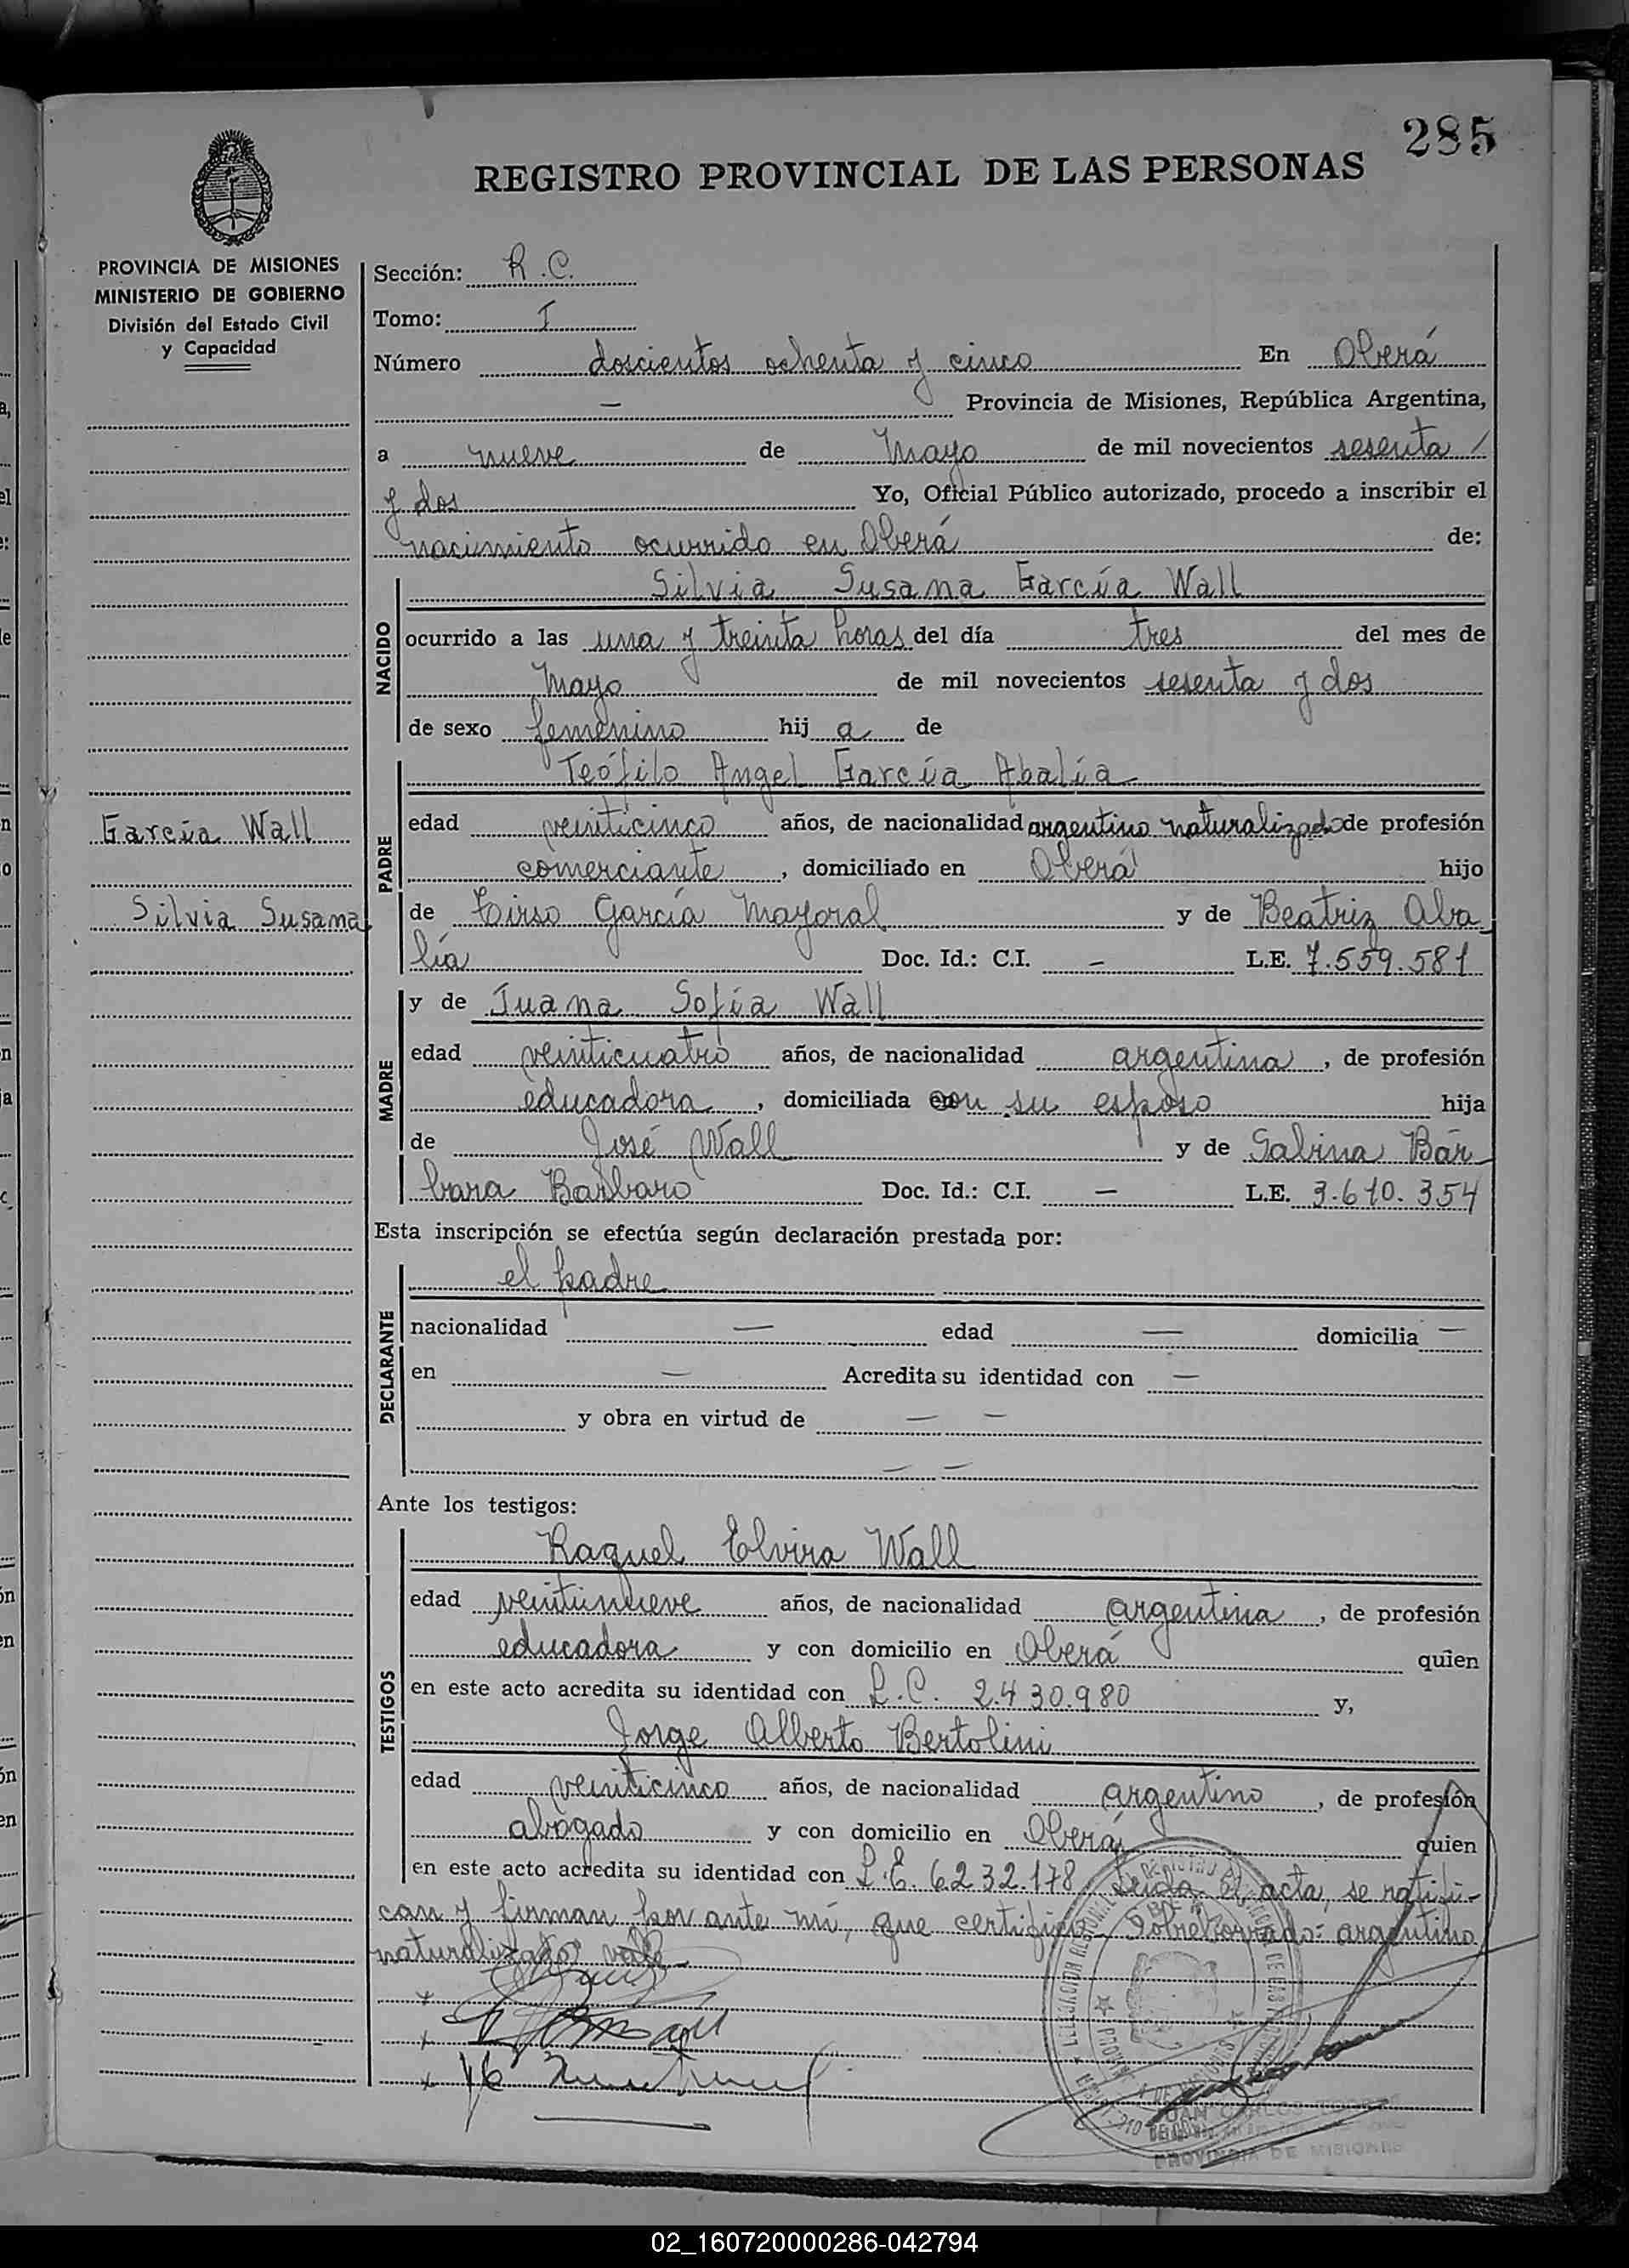 285
REGISTRO PROVINCIAL DE LAS PERSONAS
PROVINCIA DE MISIONES
MINISTERIO DE GOBIERNO
División del Estado Civil
y Capacidad
Sección: R.C.
Tomo: I
Número doscientos ochenta y cinco En Oberá
— Provincia de Misiones, República Argentina,
a nueve de Mayo de mil novecientos sesenta /
y dos Yo, Oficial Público autorizado, procedo a inscribir el
nacimiento ocurrido en Oberá de:
NACIDO
Silvia Susana García Wall
ocurrido a las una y treinta horas del día tres del mes de
Mayo de mil novecientos sesenta y dos
de sexo femenino hij a de
García Wall
Silvia Susana
PADRE
Teófilo Angel García Abalía
edad veinticinco años, de nacionalidad argentino naturalizado de profesión
comerciante, domiciliado en Oberá hijo
de Tirso García Mayoral y de Beatriz Aba
lía Doc. Id.: C.I. — L.E. 7.559.581
MADRE
y de Juana Sofía Wall
edad veinticuatro años, de nacionalidad argentina, de profesión
educadora, domiciliada con su esposo hija
de José Wall y de Sabina Bár
bara Barbaro Doc. Id.: C.I. — L.E. 3.610.354
Esta inscripción se efectúa según declaración prestada por:
DECLARANTE
el padre
nacionalidad — edad — domicilia —
en — Acredita su identidad con —
y obra en virtud de — —
— —
Ante los testigos:
TESTIGOS
Raquel Elvira Wall
edad veintinueve años, de nacionalidad argentina, de profesión
educadora y con domicilio en Oberá quien
en este acto acredita su identidad con L.C. 2.430.980 y,
Jorge Alberto Bertolini
edad veinticinco años, de nacionalidad argentino, de profesión
abogado y con domicilio en Oberá quien
en este acto acredita su identidad con L.E. 6.232.178. Leida el acta, se ratifi-
can y firman por ante mí, que certifico. Sobreborrado: argentino
naturalizado, vale
PROVINCIA DE MISIONES
02_160720000286-042794